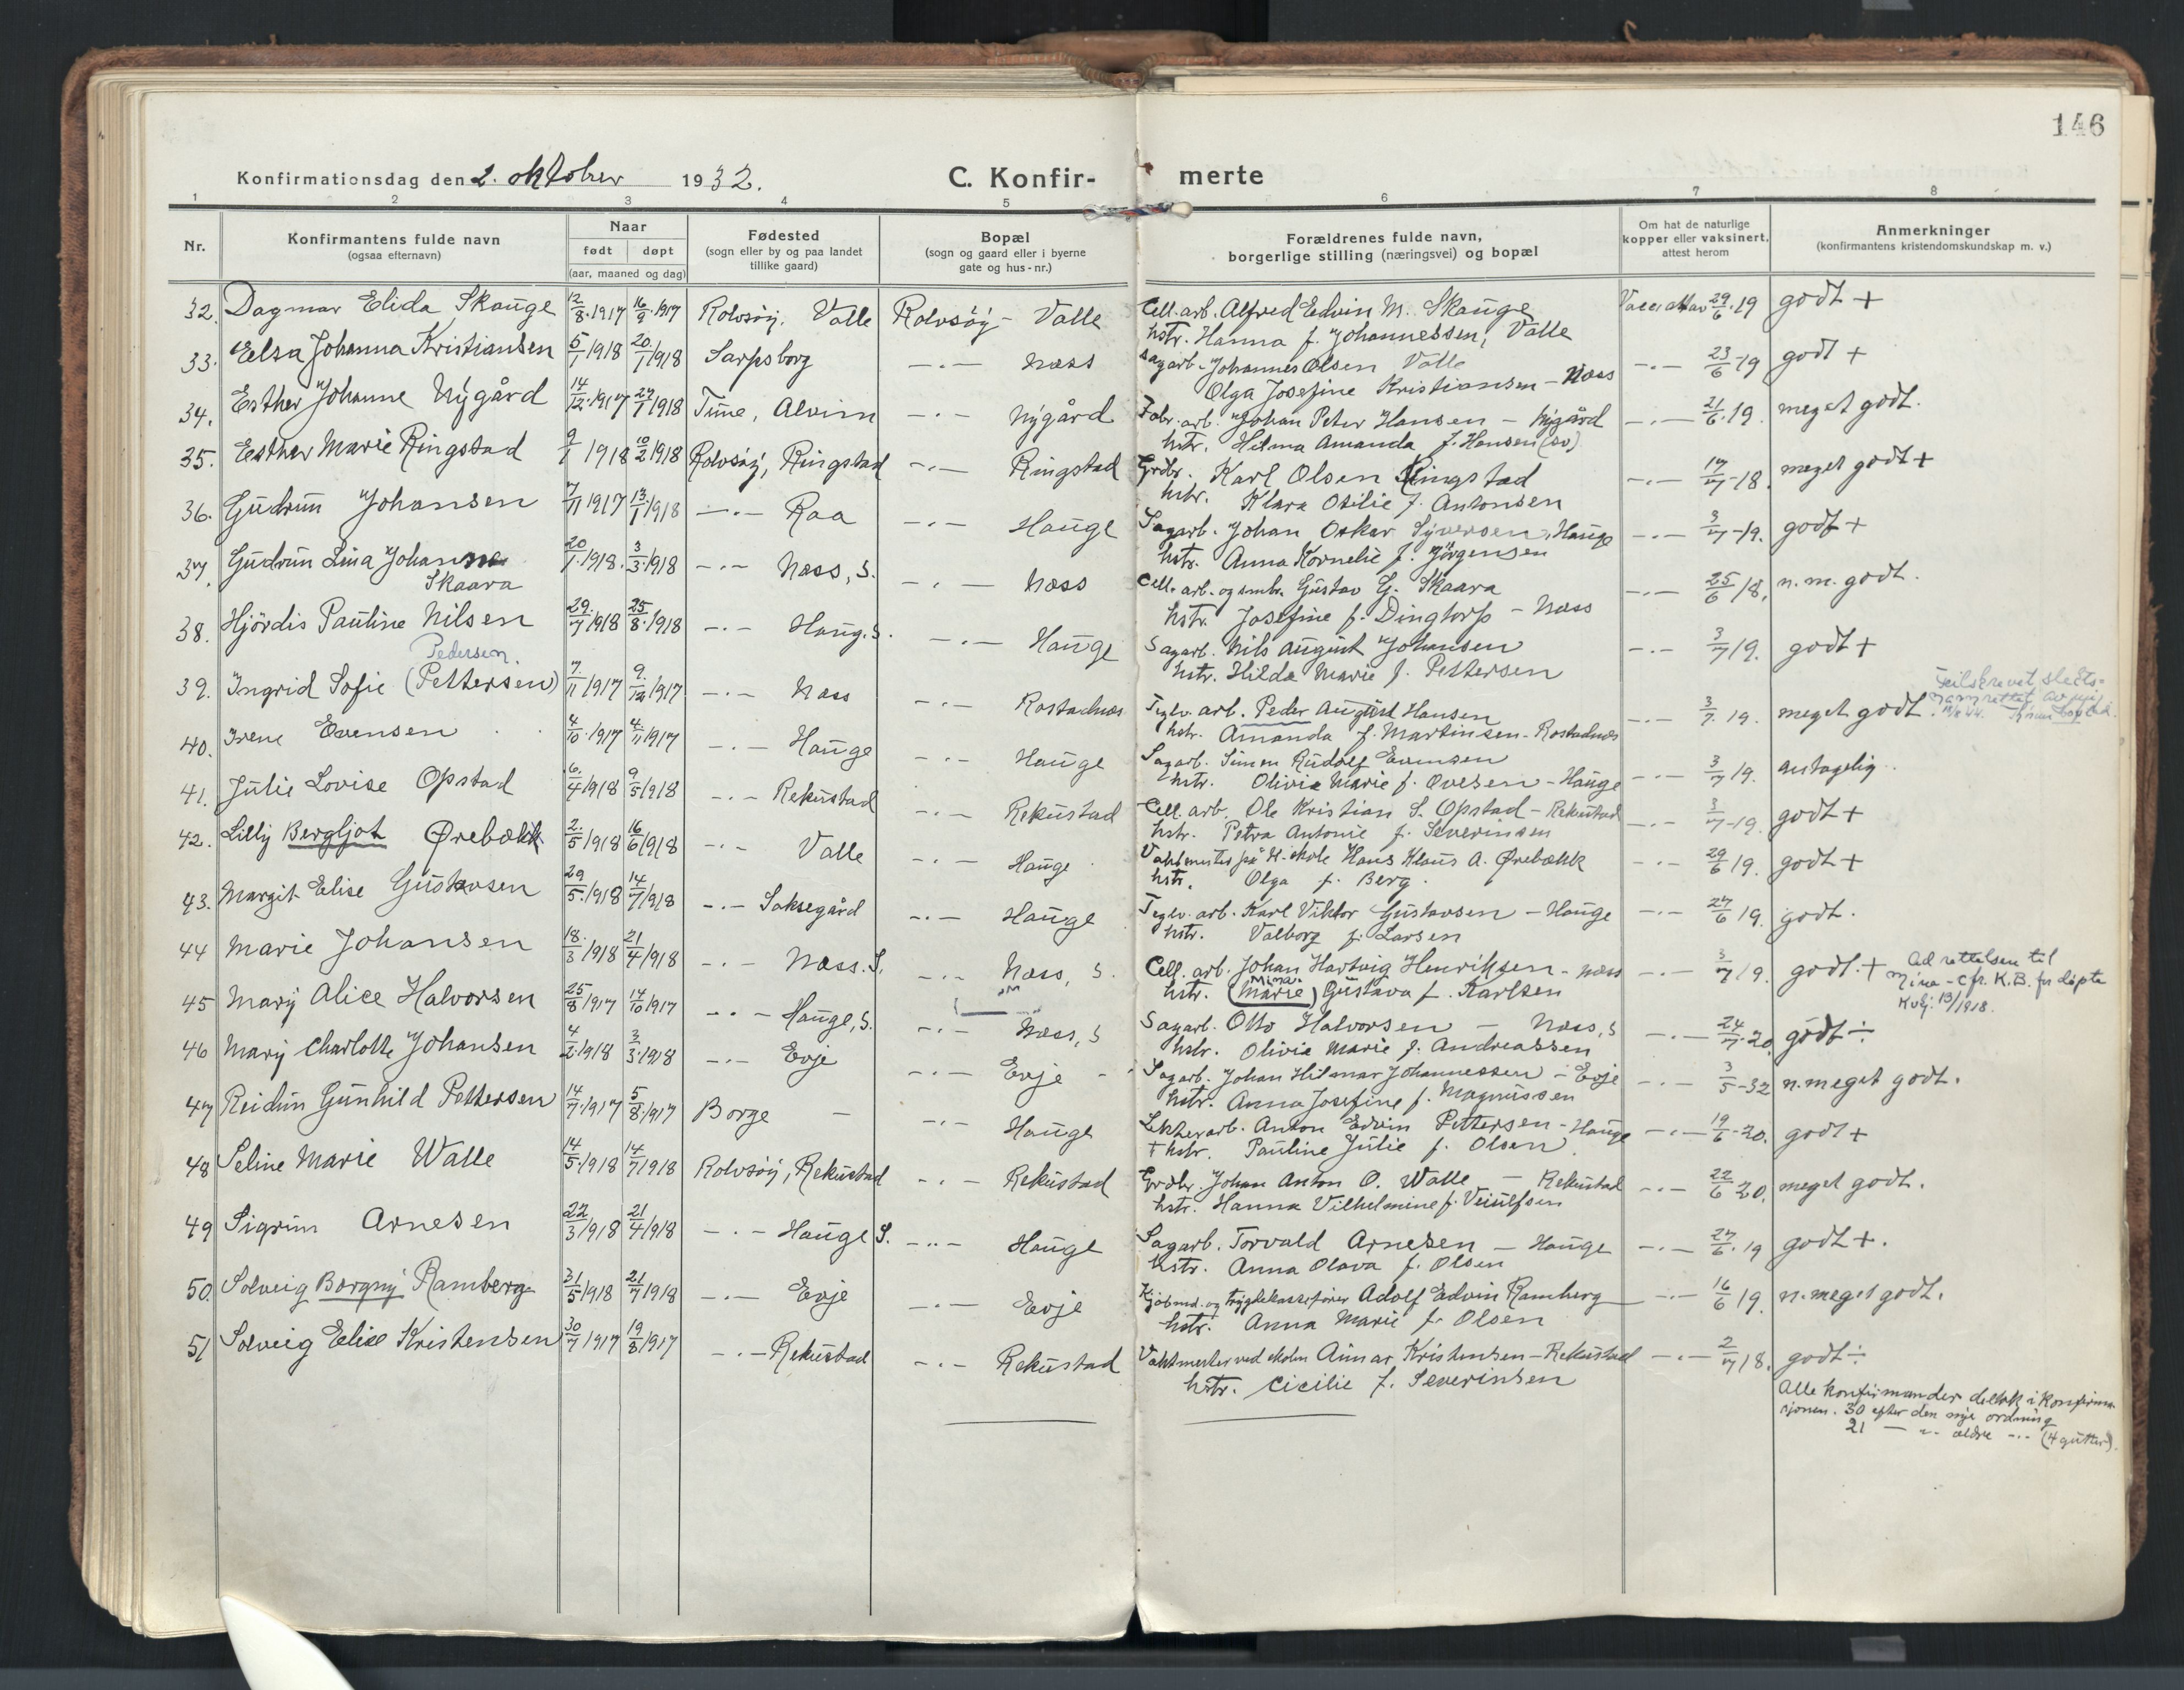 146
Konfirmationsdag den 2. oktober 1932.
C. Konfir- merte
1 2 3 4 5 6 7 8
Nr.
Konfirmantens fulde navn
(ogsaa efternavn)
Naar
født døpt
(aar, maaned og dag)
Fødested
(sogn eller by og paa landet
tillike gaard)
Bopæl
(sogn og gaard eller i byerne
gate og hus-nr.)
Forældrenes fulde navn,
borgerlige stilling (næringsvei) og bopæl
Om hat de naturlige
kopper eller vaksinert,
attest herom
Anmerkninger
(konfirmantens kristendomskundskap m. v.)
32. Dagmar Elida Skauge 12/8 1917 16/9 1917 Rolvsöy, Valle Rolvsöy - Valle Cell. arb. Alfred Edvin M. Skauge 29/6 19 godt +
hstr. Hanna f. Johannessen, Valle
33. Elsa Johanna Kristiansen 5/1 1918 20/1 1918 Sarpsborg -.- Næss Sagarb. Johannes Olsen Valle -.- 23/6 -19 godt +
Olga Josefine Kristiansen - Næss
34. Esther Johanne Nygård 14/12 1917 27/1 1918 Tune, Alvim -.- Nygård Fabr. arb. Johan Peter Hansen - Nygård -.- 21/6 19. meget godt.
hstr. Hilma Amanda f. Hansen (sv)
35. Esther Marie Ringstad 9/1 1918 10/2 1918 Rolvsöy, Ringstad -.- Ringstad Grdbr. Karl Olsen Ringstad -.- 17/7 -18. meget godt +
hstr. Klara Otilie f. Antonsen
36. Gudrun Johansen 7/11 1917 13/1 1918 -.- Raa -.- Hauge Sagarb. Johan Oskar Syversen, Hauge -.- 3/7 -19. godt +
hstr. Anna Kornelie f. Jörgensen
37. Gudrun Lina Johanne 20/1 1918. 3/3 1918 -.- Næss, S. -.- Næss Cell. arb. og smbr. Gustav G. Skaara -.- 25/6 18. n. m. godt.
Skaara
hstr. Josefine f. Dingtorp - Næss
38. Hjördis Pauline Nilsen 29/7 1918 25/8 1918 -.- Haug. S. -.- Hauge Sagarb. Nils August Johansen -.- 3/7 19. godt +
hstr. Hilda Marie f. Pettersen
Pedersen.
39. Ingrid Sofie (Pettersen) 7/11 1917 9/12 1917 -.- Næss -.- Rostadnes Teglv. arb. Peder August Hansen -.- 3/7 19. meget godt.
hstr. Amanda f. Martinsen - Rostadnes
Feilskrevet slekts-
navn rettet av mig
40. Irene Evensen 4/10 1917 4/11 1917 -.- Hauge -.- Hauge Sagarb. Simen Rudolf Evensen -.- 3/7 19. antagelig.
hstr. Olivia Marie f. Ovesen - Hauge
41. Julie Lovise Opstad 6/4 1918 9/5 1918 -.- Rekustad -.- Rekustad Cell. arb. Ole Kristian S. Opstad - Rekustad -.- 3/7 -19. godt +
hstr. Petra Antonie f. Severinsen
42. Lilly Bergljot Ørebækk 2/5 1918 16/6 1918 -.- Valle -.- Hauge Vaktmester på H. skole Hans Klaus A. Ørebækk -.- 29/6 19. godt +
hstr. Olga f. Berg.
43. Margit Elise Gustavsen 29/5 1918 14/7 1918 -.- Saksegård -.- Hauge Teglv. arb. Karl Viktor Gustavsen - Hauge -.- 27/6 19. godt.
hstr. Valborg f. Larsen
44 Marie Johansen 18/3 1918 21/4 1918 -.- Næss. S. -.- Næss, S. Cell. arb. Johan Hartvig Henriksen - Næss -.- 3/7 19. godt. +
Mina
hstr. (Marie) Gustava f. Karlsen
Ad rettelsen til
Mina - Cfr. K.B. for döpte
Kvj. 13/1918.
45 Mary Alice Halvorsen 25/8 1917 14/10 1917 -.- Hauge, S. -.- Næss, S Sagarb. Otto Halvorsen - Næss, S -.- 24/7 20. godt ÷
hstr. Olivia Marie f. Andreassen
46 Mary Charlotte Johansen 4/2 1918 3/3 1918 -.- Evje -.- Evje Sagarb. Johan Hilmar Johannessen - Evje -.- 3/5 -32 n. meget godt.
hstr. Anna Josefine f. Magnussen
47 Reidun Gunhild Pettersen 14/7 1917 5/8 1917 Borge - -.- Hauge Lekterarb. Anton Edvin Pettersen - Hauge -.- 19/6 -20. godt +
+ hstr. Pauline Julie f. Olsen.
48 Seline Marie Walle 14/5 1918 14/7 1918 Rolvsöy, Rekustad -.- Rekustad Grdbr. Johan Anton O. Walle - Rekustad -.- 22/6 20. meget godt.
hstr. Hanna Vilhelmine f. Veiulfsen
49 Sigrun Arnesen 22/3 1918 21/4 1918 -.- Hauge S. -.- Hauge Sagarb. Torvald Arnesen - Hauge -.- 27/6 19 godt +.
hstr. Anna Olava f. Olsen
50. Solveig Borgny Ramberg 31/5 1918 21/7 1918 -.- Evje -.- Evje Kjöbmd. og trygdekassefører Adolf Edvin Ramberg -.- 16/6 19. n. meget godt.
hstr. Anna Marie f. Olsen
51 Solveig Elise Kristensen 30/7 1917 19/8 1917 -.- Rekustad -.- Rekustad Vaktmester ved skolen Aimar Kristensen - Rekustad -.- 2/7 18. godt ÷
hstr. Cicilie f. Severinsen
Alle konfirmander deltok i konfirma-
sjonen. 30 efter den nye ordning
21 - " - ældre -.- (4 gutter).